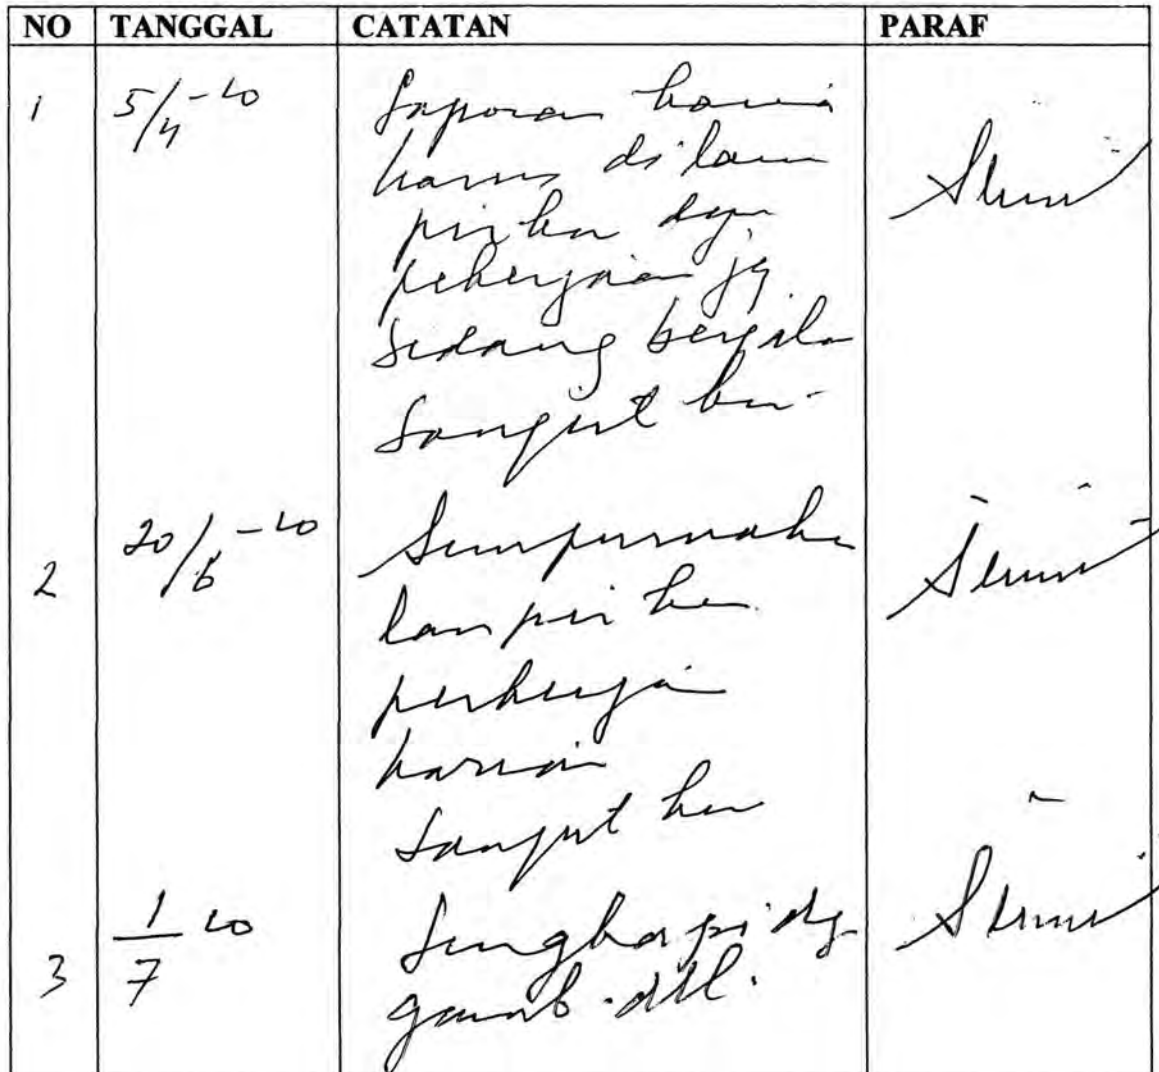 NO TANGGAL CATATAN PARAF
1 5/4 -20 Laporan harian
harus dilam
pirkan dgn
pekerjaan yg
sedang berjalan
Langut kan
2 20/6 -20 Sempurnakan
lampirkan
perkerjaan
harian
Langut kan
3 1/7 20 Lengkapi dg
gamb. dll.